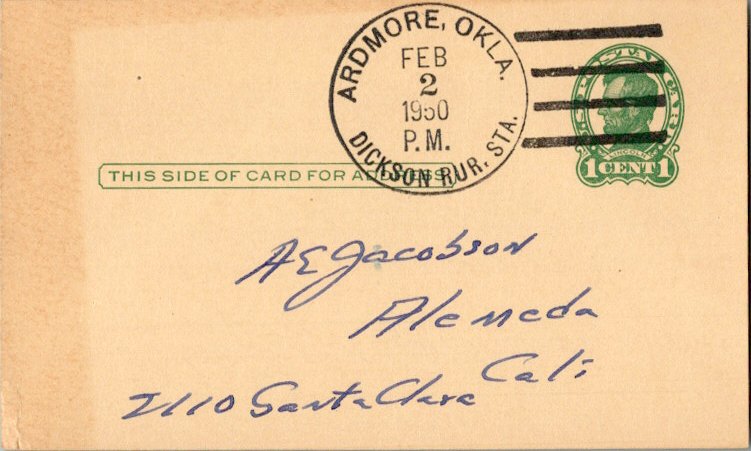 ARDMORE, OKLA.
FEB
2
1950
P.M.
DICKSON RUR. STA.
U.S. POSTAL CARD
LINCOLN
1 CENT 1
THIS SIDE OF CARD FOR ADDRESS
A E Jacobson
Alemeda
Cali
2110 Santa Clara